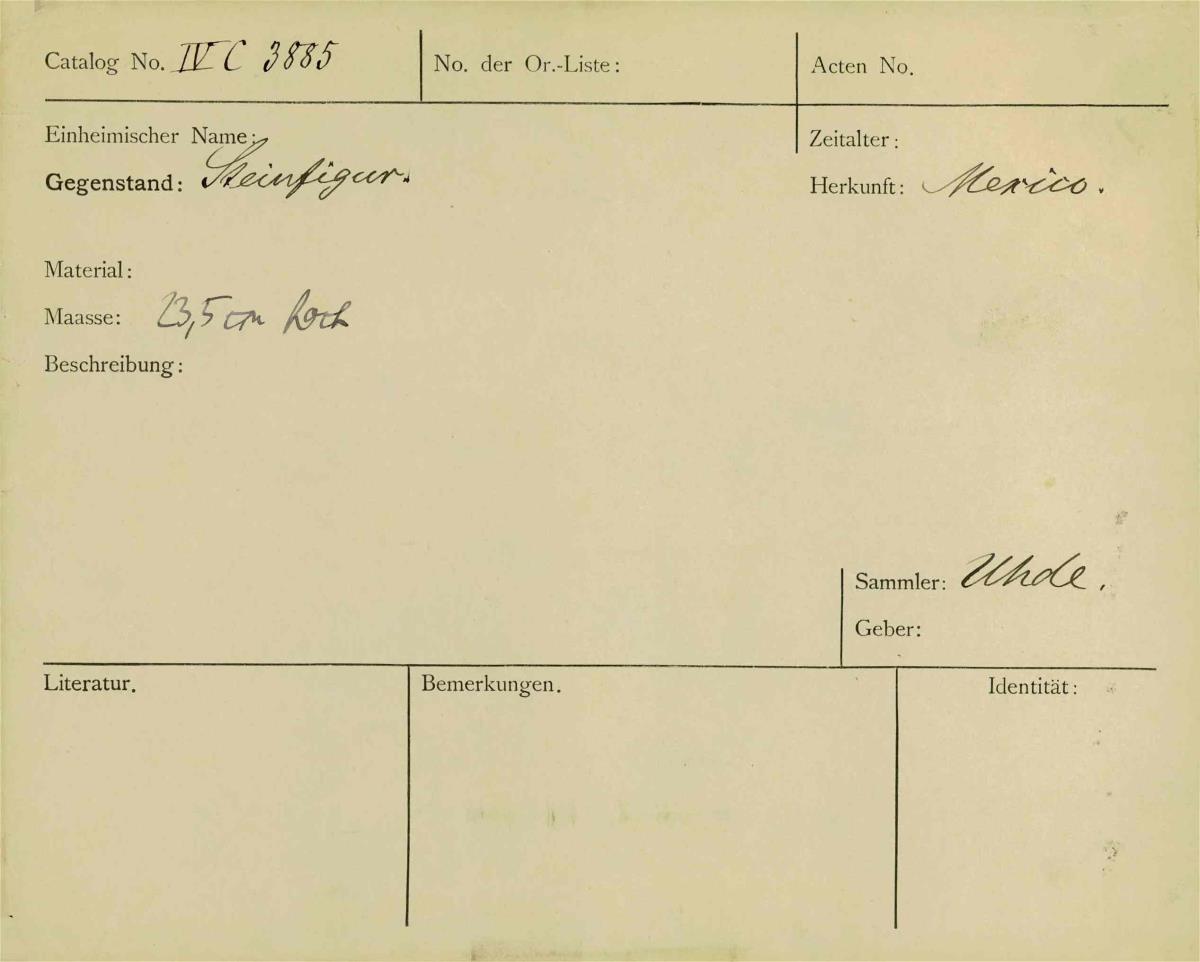 Catalog No. IV C 3885
No. der Or.-Liste:
Acten No.
Einheimischer Name:
Zeitalter:
Gegenstand: Steinfigur.
Herkunft: Mexico.
Material:
Maasse: 23,5 cm hoch
Beschreibung:
Sammler: Uhde.
Geber:
Literatur.
Bemerkungen.
Identität: